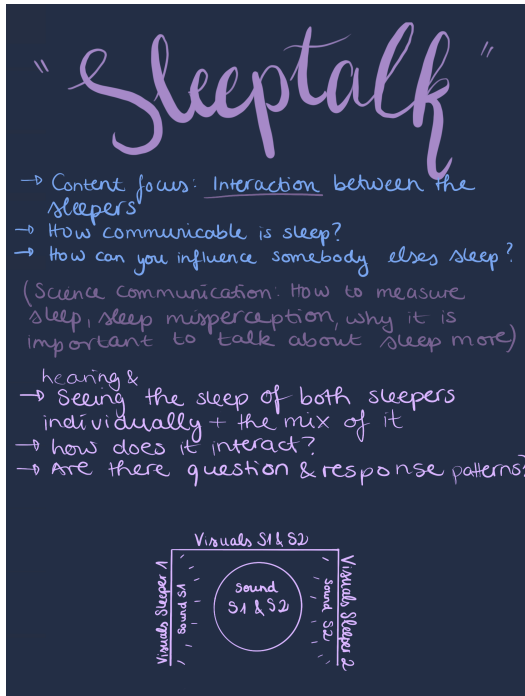 "Sleeptalk"
→ Content focus: Interaction between the
sleepers
→ How communicable is sleep?
→ How can you influence somebody elses sleep?
(Science communication: How to measure
sleep, sleep misperception, why it is
important to talk about sleep more)
hearing &
→ Seeing the sleep of both sleepers
individually + the mix of it
→ how does it interact?
→ Are there question & response patterns?
Visuals S1 & S2
Visuals Sleeper 1
Sound S1
Sound
S1 & S2
Sound S2
Visuals Sleeper 2